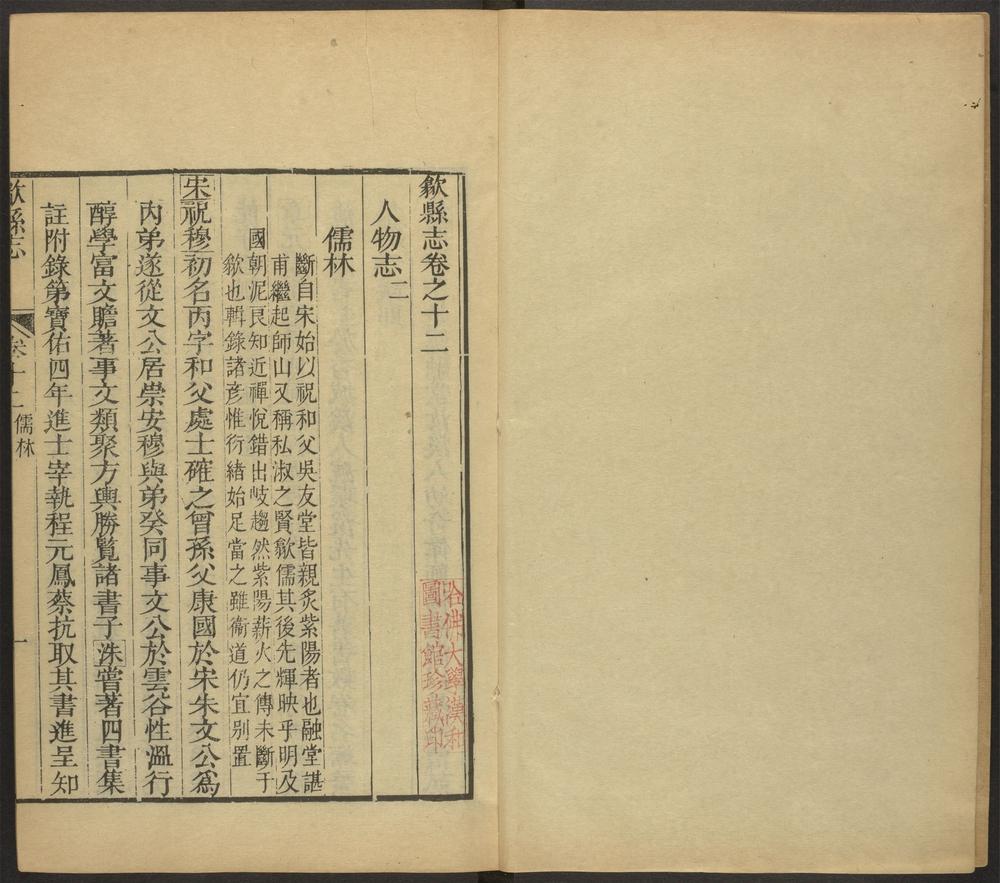 歙縣志卷之十二
哈佛大學漢和
圖書館珍藏印
人物志二
儒林
斷自宋始以祝和父吳友堂皆親炙紫陽者也融堂諶
甫繼起師山又稱私淑之賢歙儒其後先輝映乎明及
國朝泥良知近禪悅錯出岐趨然紫陽薪火之傳未斷于
歙也輯錄諸彥惟衍緒始足當之雖衞道仍宜別置
宋祝穆初名丙字和父處士確之曾孫父康國於宋朱文公爲
內弟遂從文公居崇安穆與弟癸同事文公於雲谷性溫行
醇學富文贍著事文類聚方輿勝覧諸書子洙嘗著四書集
註附錄第寶佑四年進士宰執程元鳳蔡抗取其書進呈知
歙縣志
卷十二
儒林
一